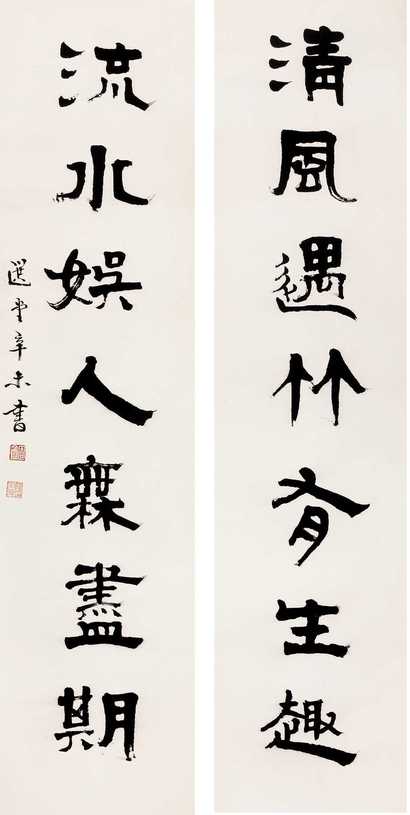 清風遇竹有生趣
流水娛人無盡期
選堂辛未書